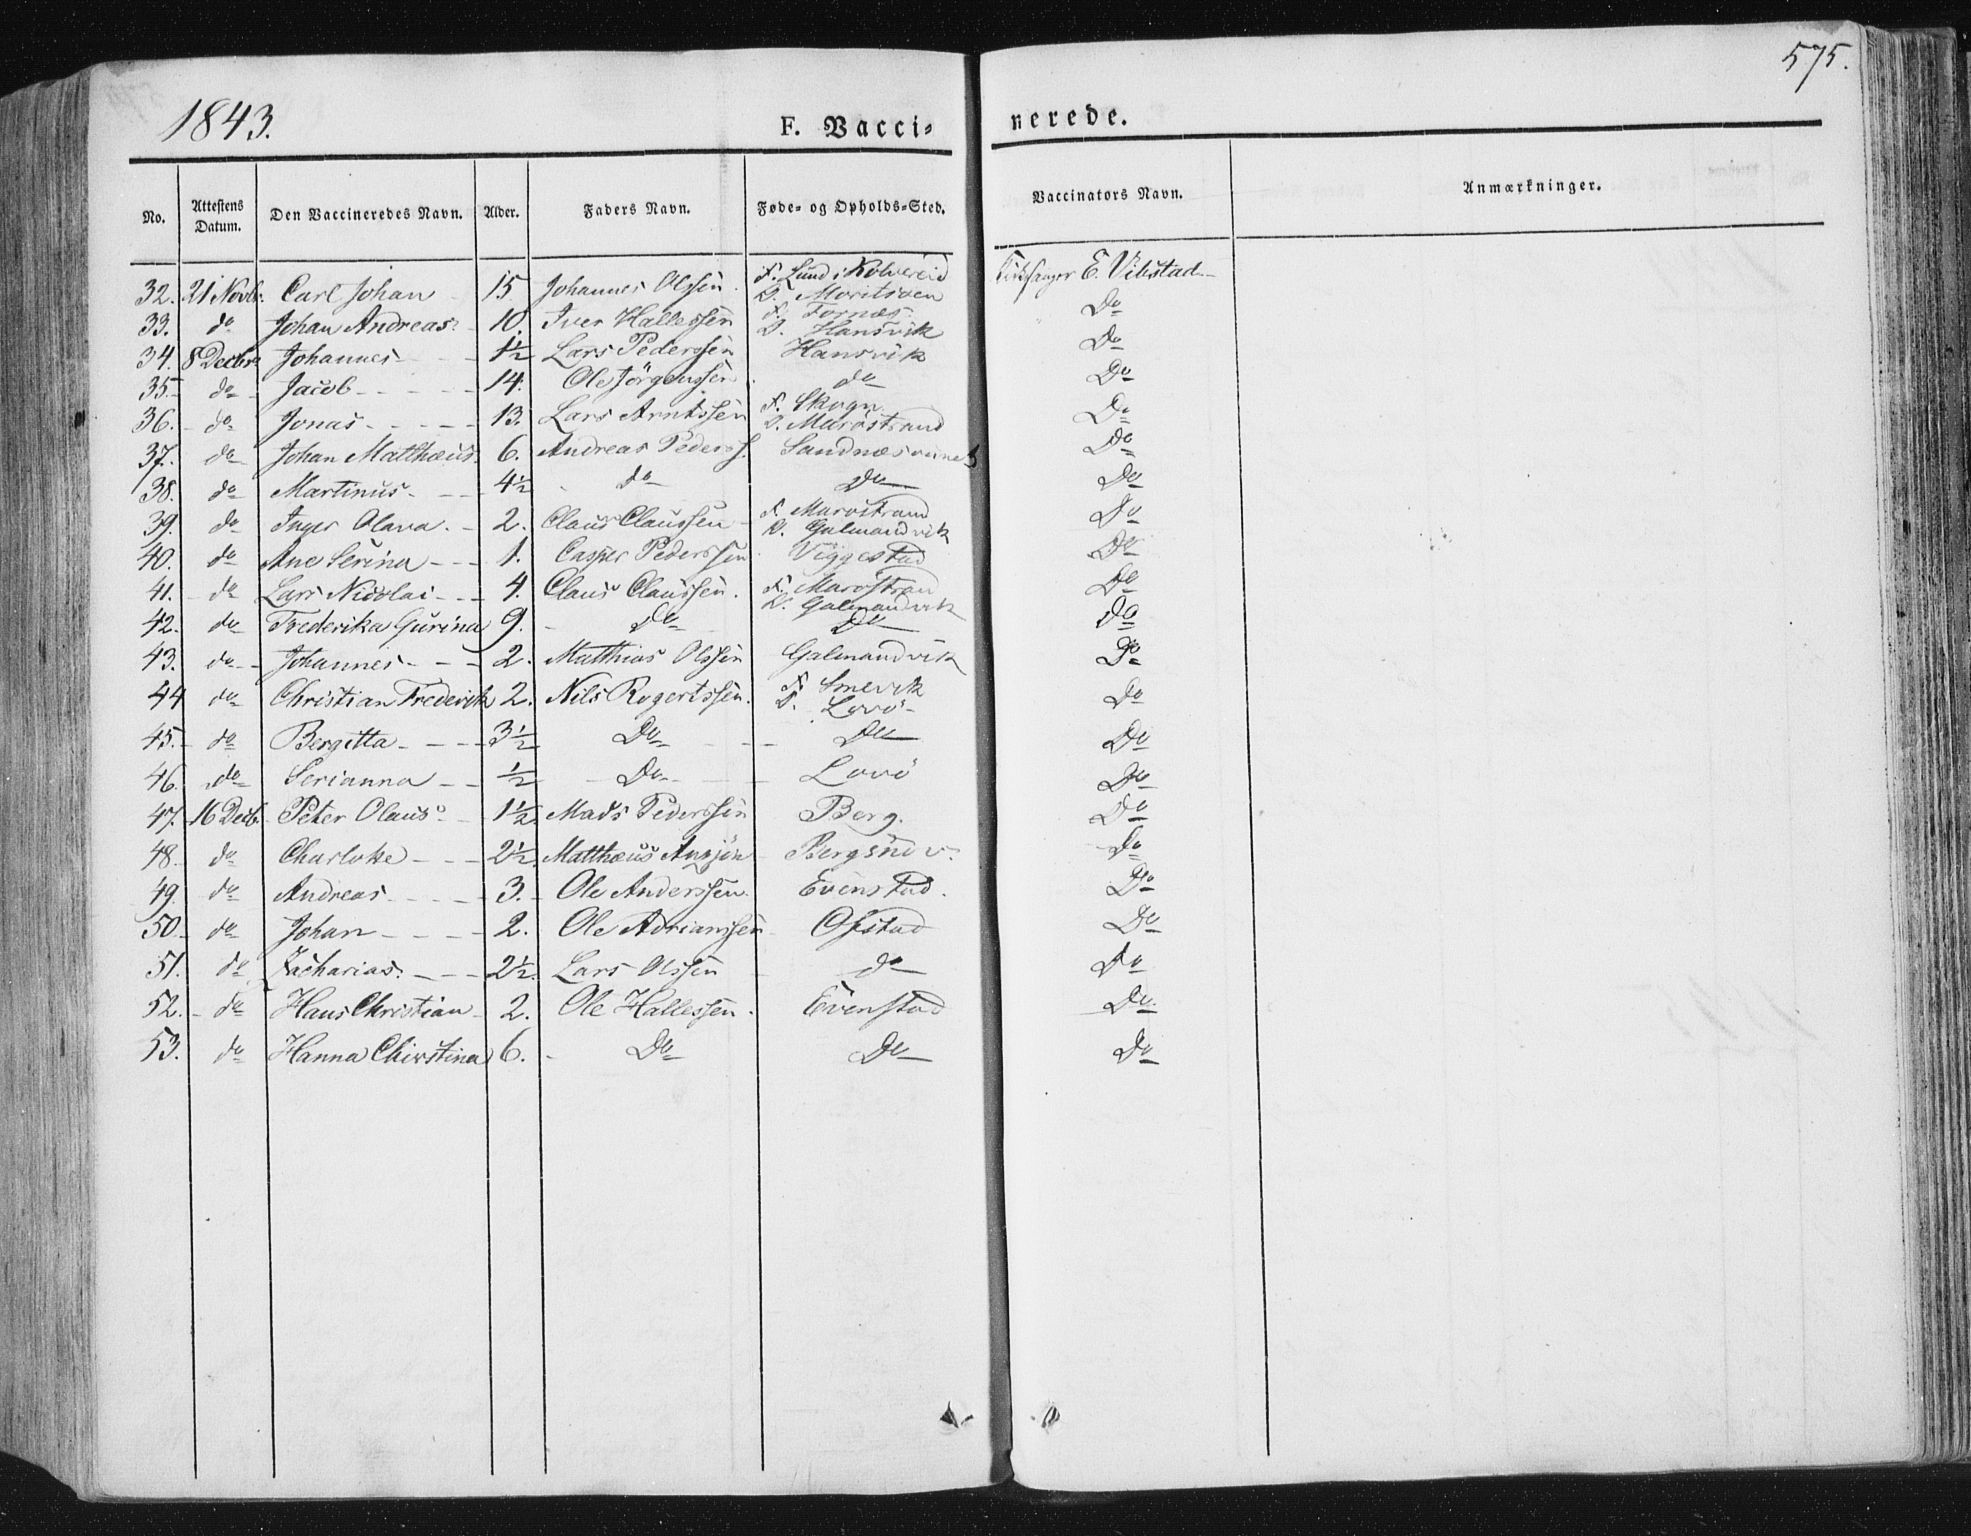 575.
1843.
F. Vacci- nerede.
No. Attestens Datum. Den Vaccineredes Navn. Alder. Faders Navn. Føde- og Opholds-Sted. Vaccinators Navn. Anmærkninger.
32. 21 Novbr. Carl Johan 15 Johannes Olssen. F. Lund i Kolvereid Kirkesanger E. Vibstad
O. Moritsøen
33. do Johan Andreas 10. Iver Hallessen F. Fornæs Do
O. Hansvik
34. 8 Decbr Johannes 1½ Lars Pederssen Hansvik Do
35. do Jacob 14. Ole Jörgenssen do Do
36. do Jonas 13. Lars Arntssen F. Skogn Do
O. Maröstrand
37. do Johan Matthæus. 6. Andreas Pederss. Do
38. do Martinus 4½ do Do Do
39. do Inger Olava. 2. Claus Claussen F. Maröstrand Do
O. Galmandvik
40. do Ane Serina 1. Casper Pederssen Viggestad Do
41. do Lars Nicolai 4. Claus Claussen. F. Maröstran Do
O. Galmandvik
42. do Frederika Gurina 9. Do Do Do
43. do Johannes 2. Matthias Olssen Galmandvik Do
44 do Christian Frederik 2. Nils Rogertssen. F. Smevik Do
O. Lovö
45. do Bergitta 3½ Do Do Do
46. do Serianna ½ Do Lovö Do
47. 16 Decb. Peter Olaus 1½ Mads Pederssen Berg. Do
48. do Charlotte 2½. Matthæus Do
49. do Andreas 3. Ole Anderssen. Evenstad. Do
50. do Johan 2. Ole Adrianssen Ofstad Do
51. do Zacharias. 2½. Lars Olssen do Do
52. do Hans Christian 2. Ole Hallessen. Evenstad Do
53. do Hanna Chirstina 6. Do Do Do